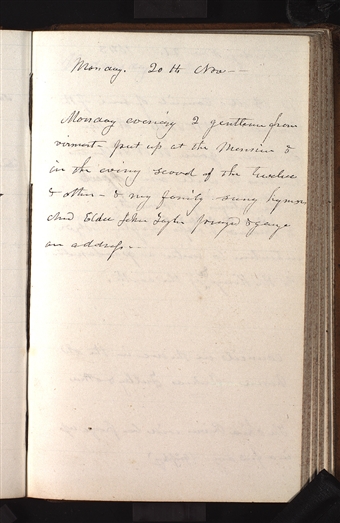 Monday. 20th Nov—
Monday evening 2 gentlemen from
virmont— put up at the Mansion &
in the evining several of the twelve
& other— & my family sung hymns
And Elder John Taylor prayed & gave
an address.—